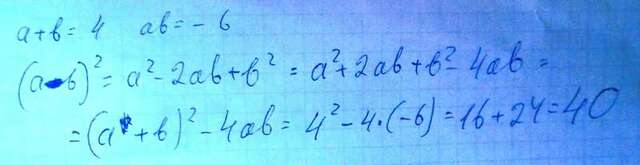 a+b=4 ab=-6
(a-b)²=a²-2ab+b²=a²+2ab+b²-4ab=
=(a+b)²-4ab=4²-4·(-6)=16+24=40